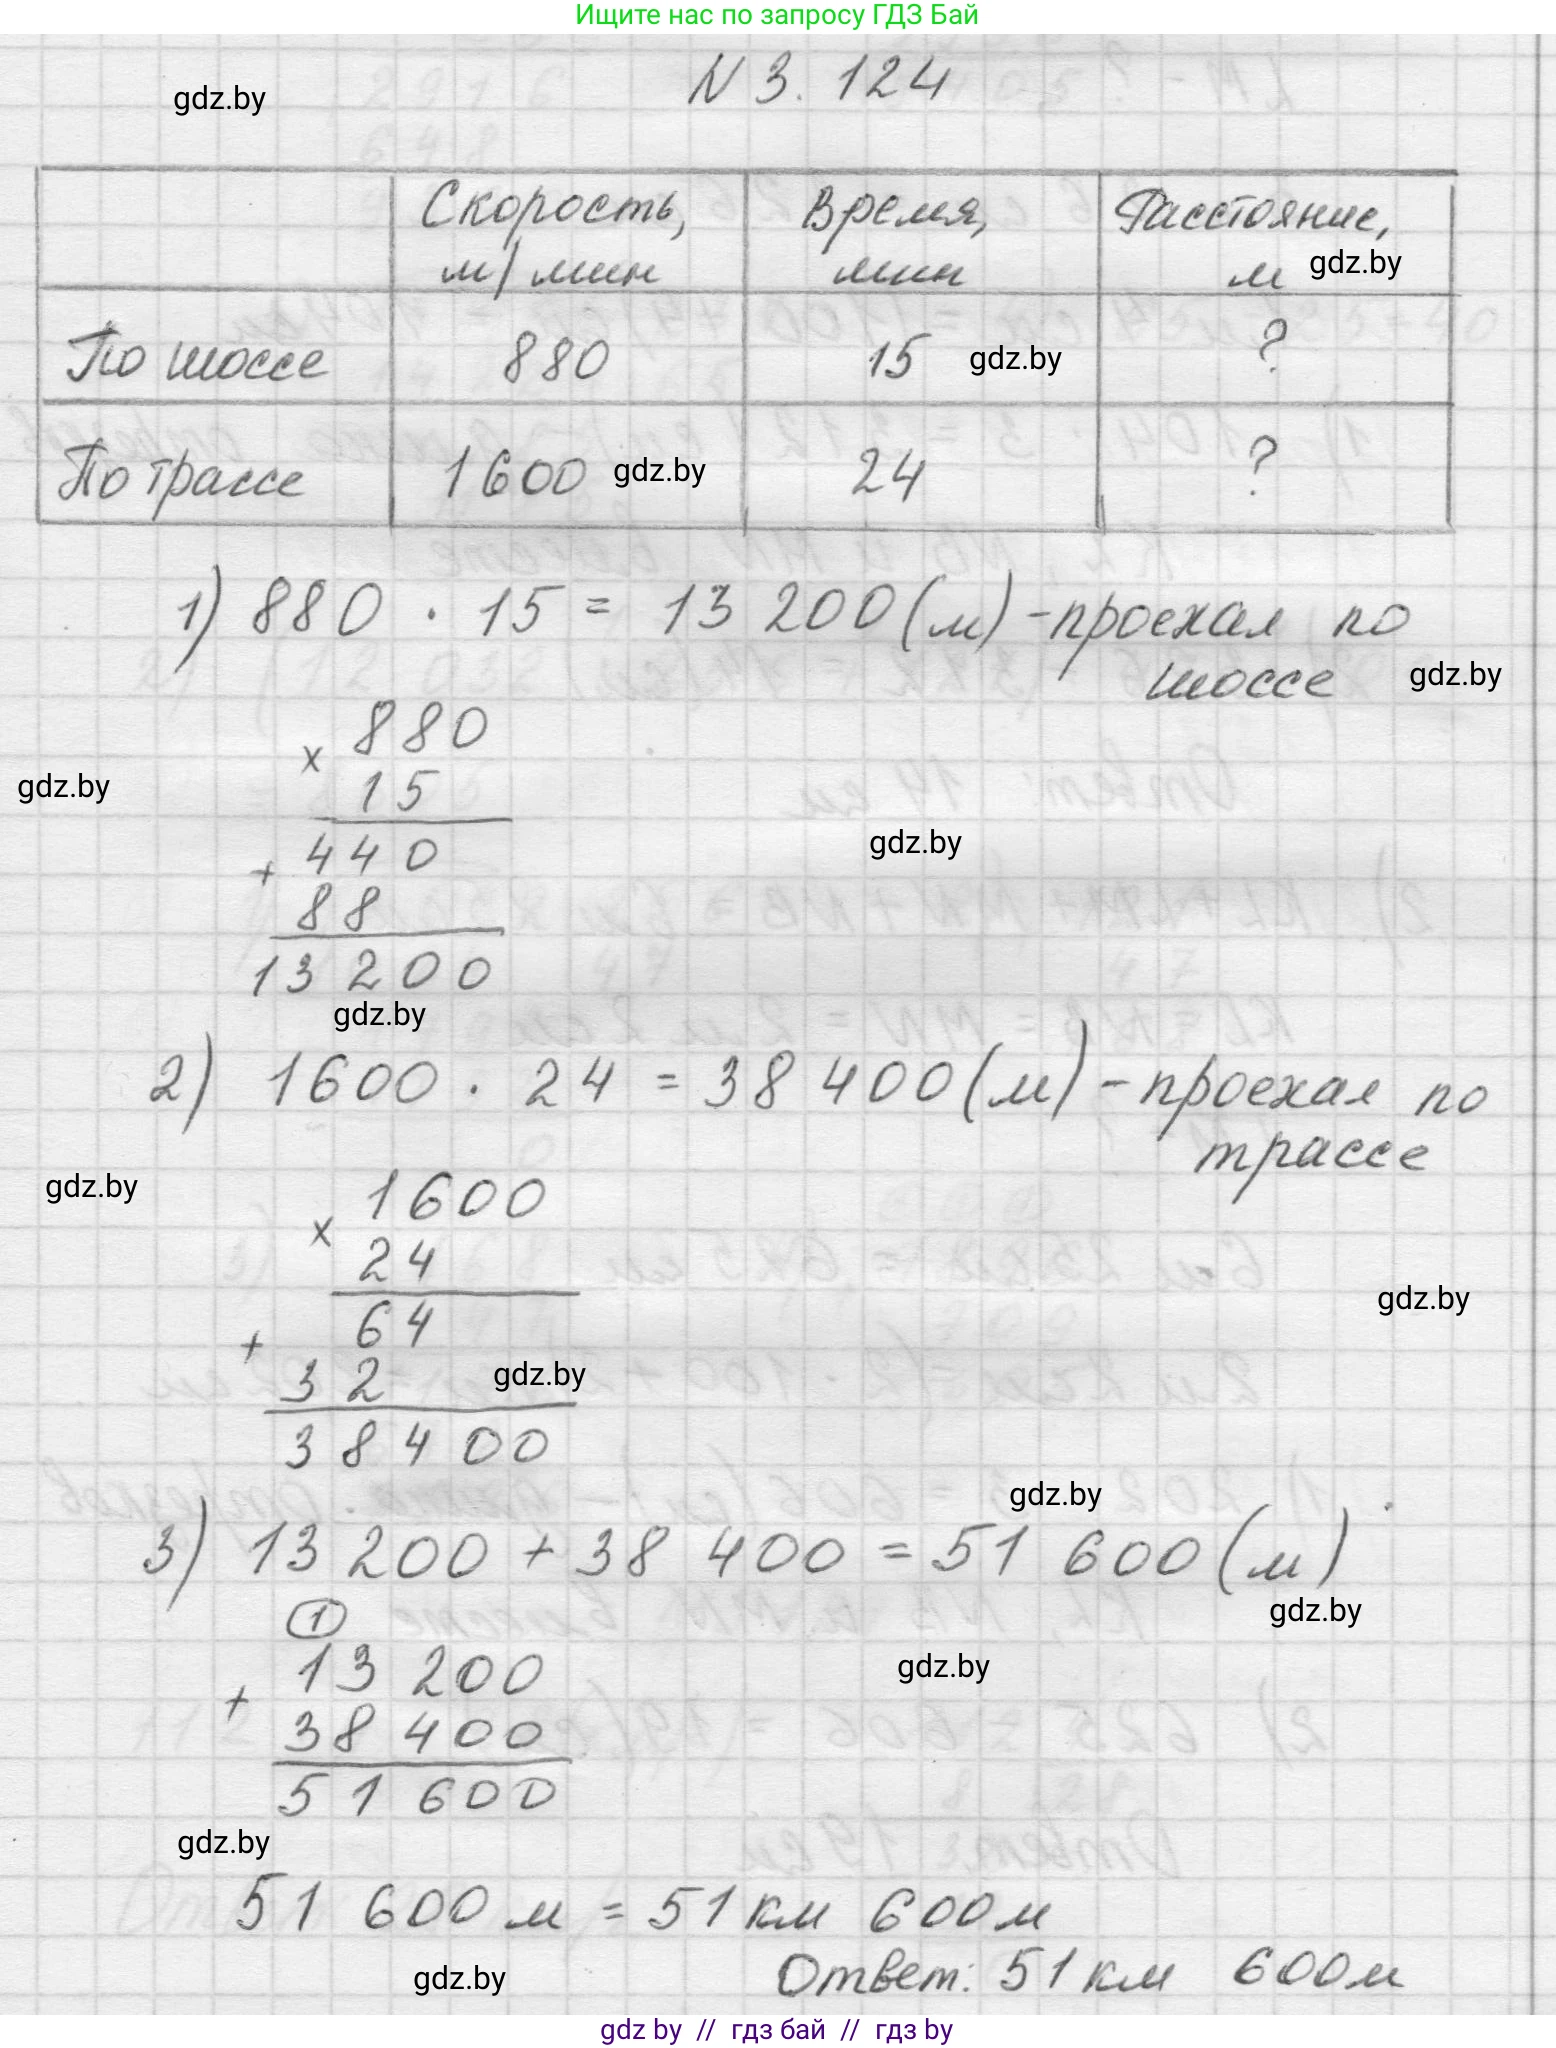 Ищите нас по запросу ГДЗ Бай
N 3. 124
gdz.by
Скорость, м/мин
Время, мин
Расстояние, м
gdz.by
По шоссе 880 15 gdz.by ?
По трассе 1600 gdz.by 24 ?
1) 880 · 15 = 13 200 (м) - проехал по
шоссе gdz.by
x 880
15
gdz.by
gdz.by
+ 440
88
13 200
gdz.by
2) 1600 · 24 = 38 400 (м) - проехал по
трассе
gdz.by
x 1600
24
gdz.by
+ 64
32 gdz.by
38 400
gdz.by
3) 13 200 + 38 400 = 51 600 (м)
gdz.by
1
+ 13 200
gdz.by
38 400
51 600
gdz.by
51 600 м = 51 км 600 м
gdz.by
Ответ: 51 км 600 м
gdz by // гдз бай // gdz by